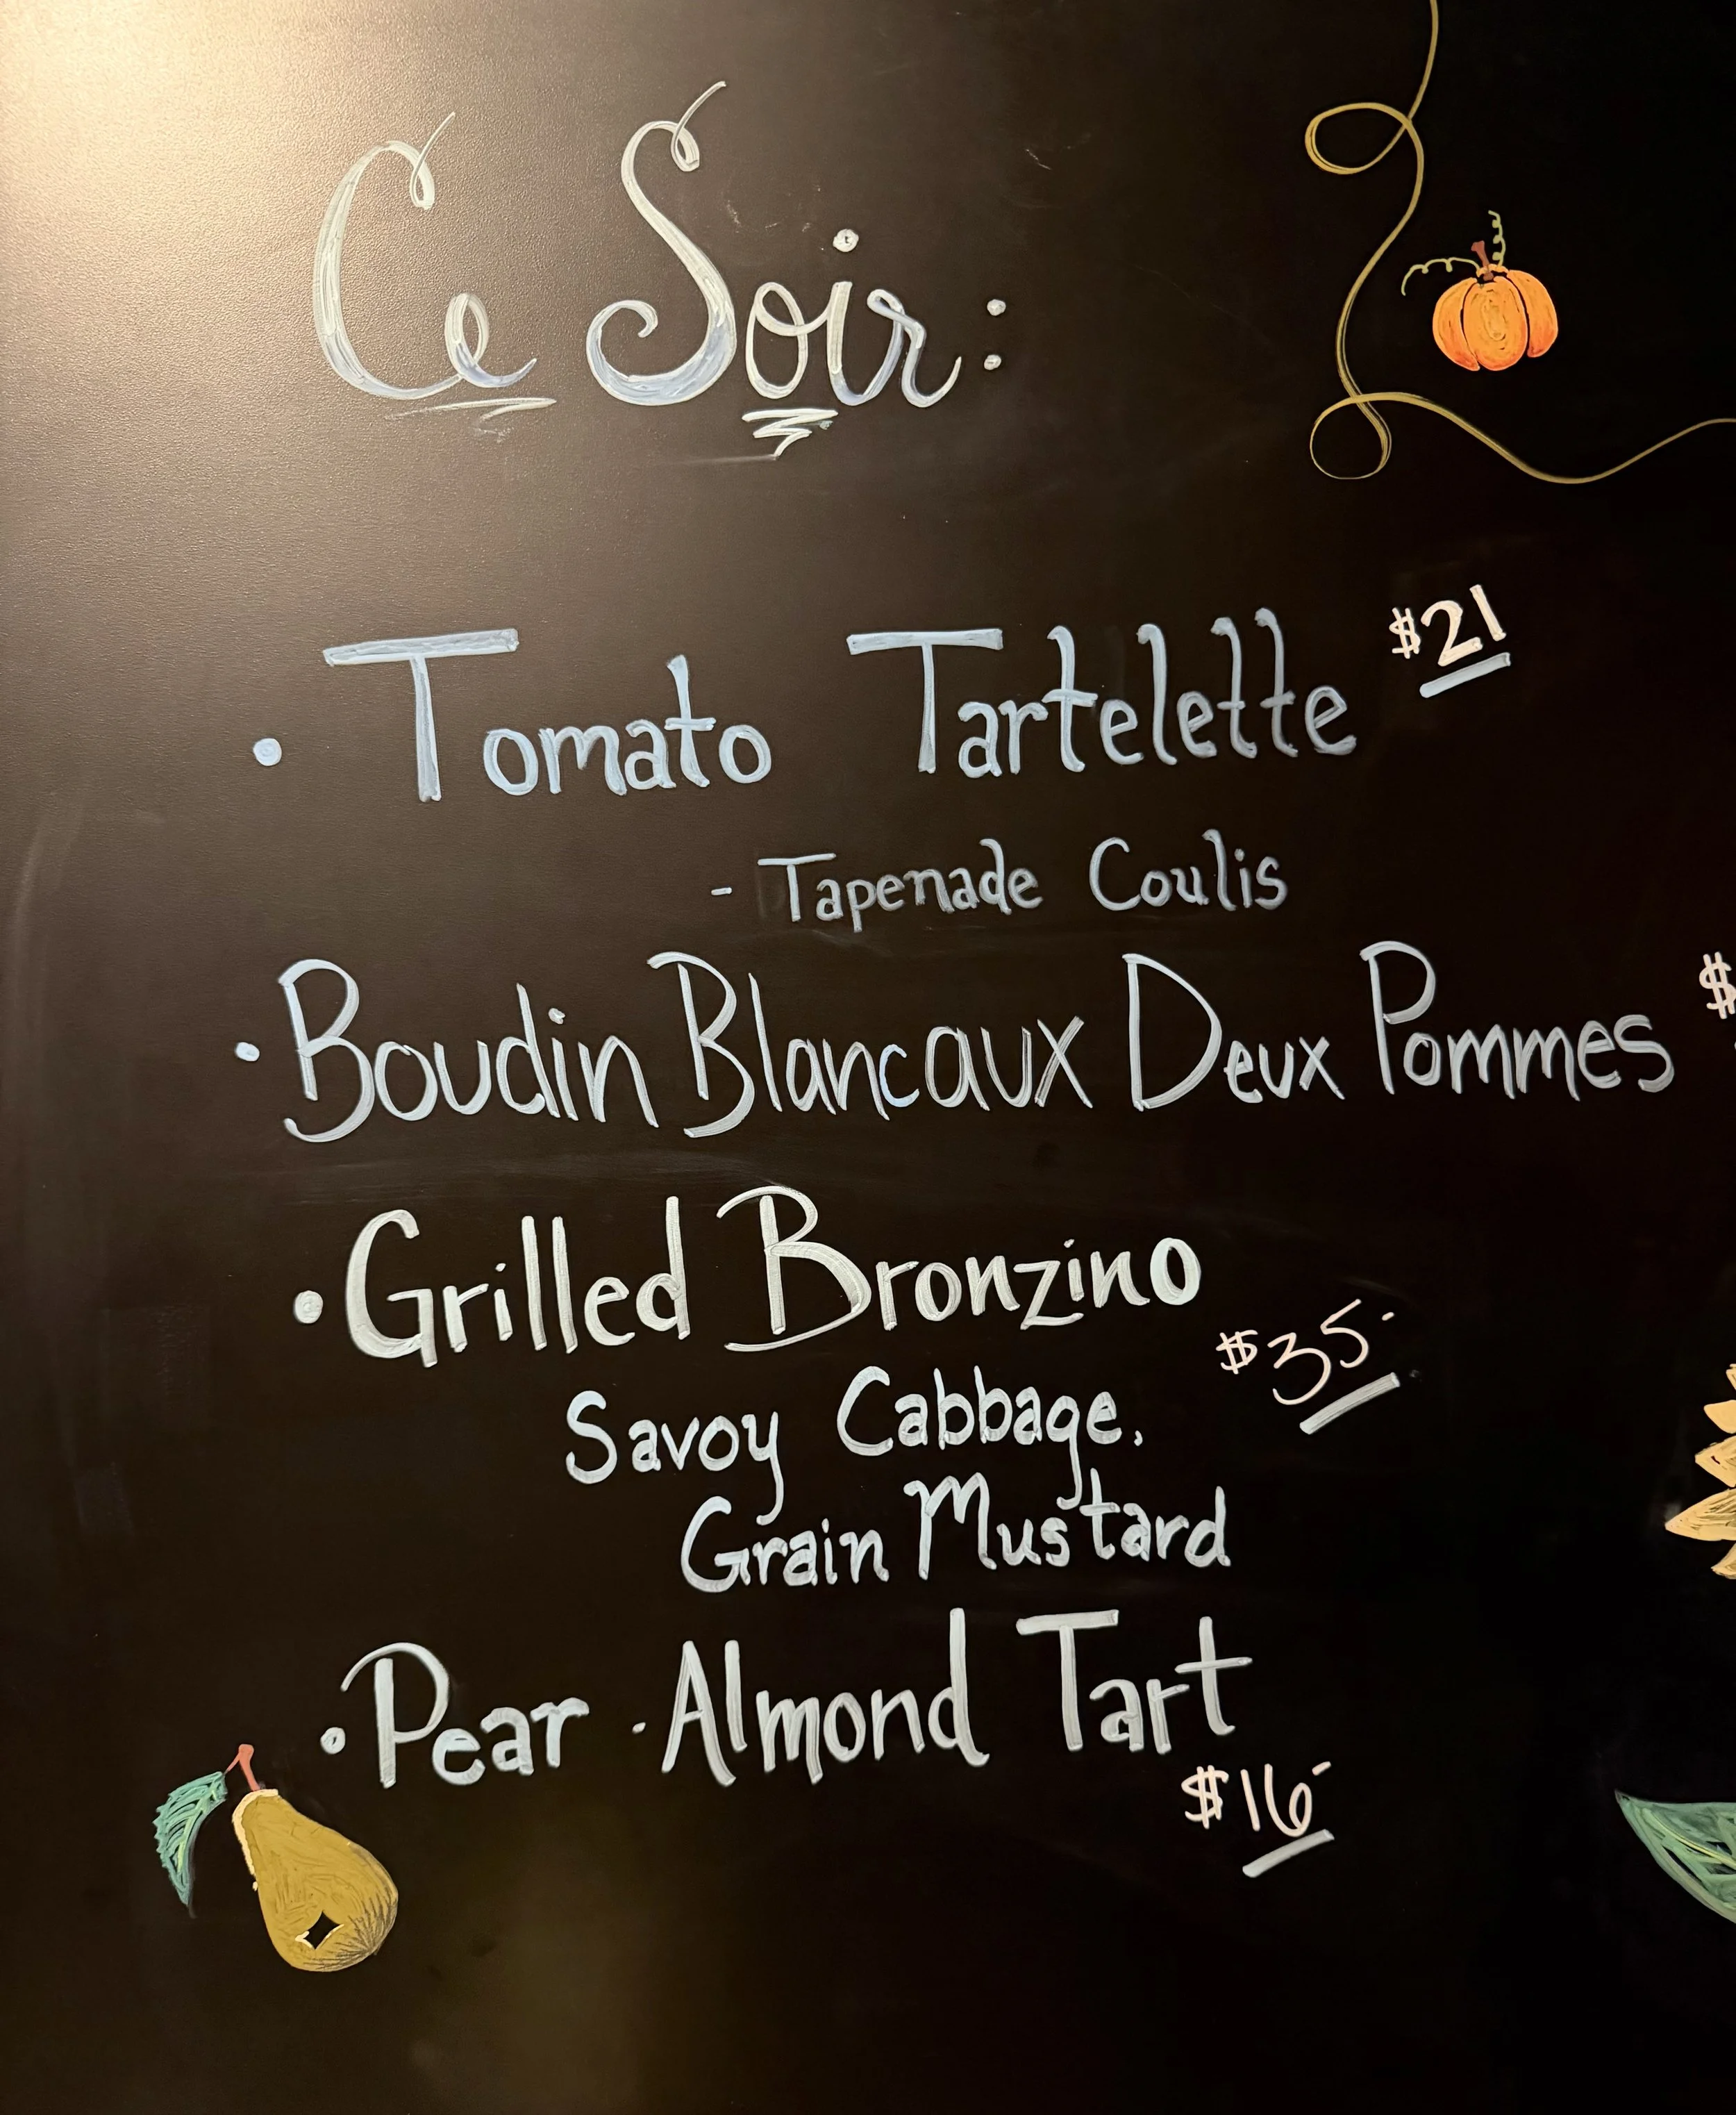 Ce Soir:
• Tomato Tartelette $21
- Tapenade Coulis
• Boudin Blancaux Deux Pommes $
• Grilled Bronzino
$35-
Savoy Cabbage,
Grain Mustard
• Pear - Almond Tart
$16-